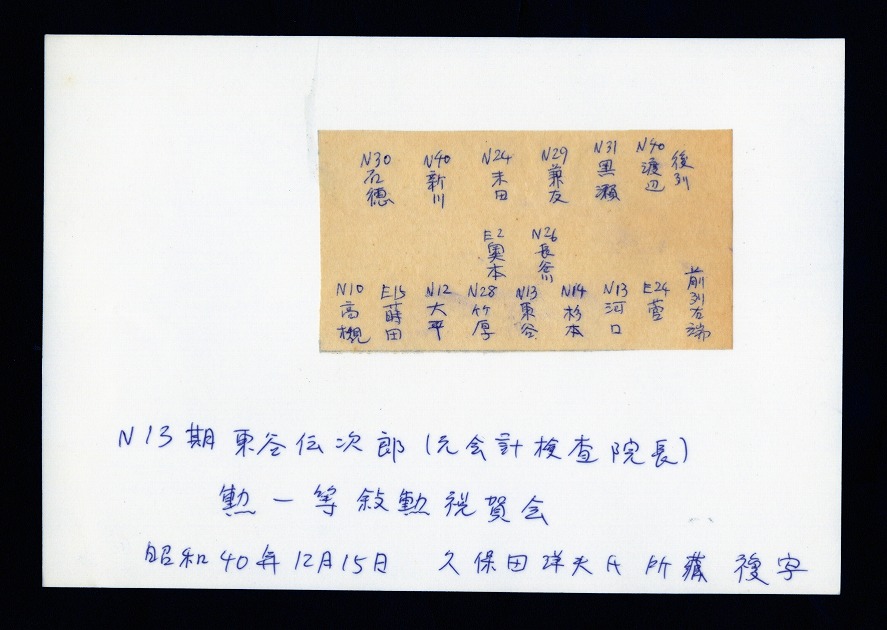 後列
N40 渡辺
N31 黒瀬
N29 兼友
N24 末田
N40 新川
N30 石徳
N26 長谷川
E2 奥本
前列右端
E24 萱
N13 河口
N14 杉本
N13 東谷
N28 竹厚
N12 大平
E15 蒔田
N10 高槻
N13期 東谷伝次郎(元会計検査院長)
勲一等叙勲祝賀会
昭和40年12月15日 久保田洋夫氏所蔵 複写